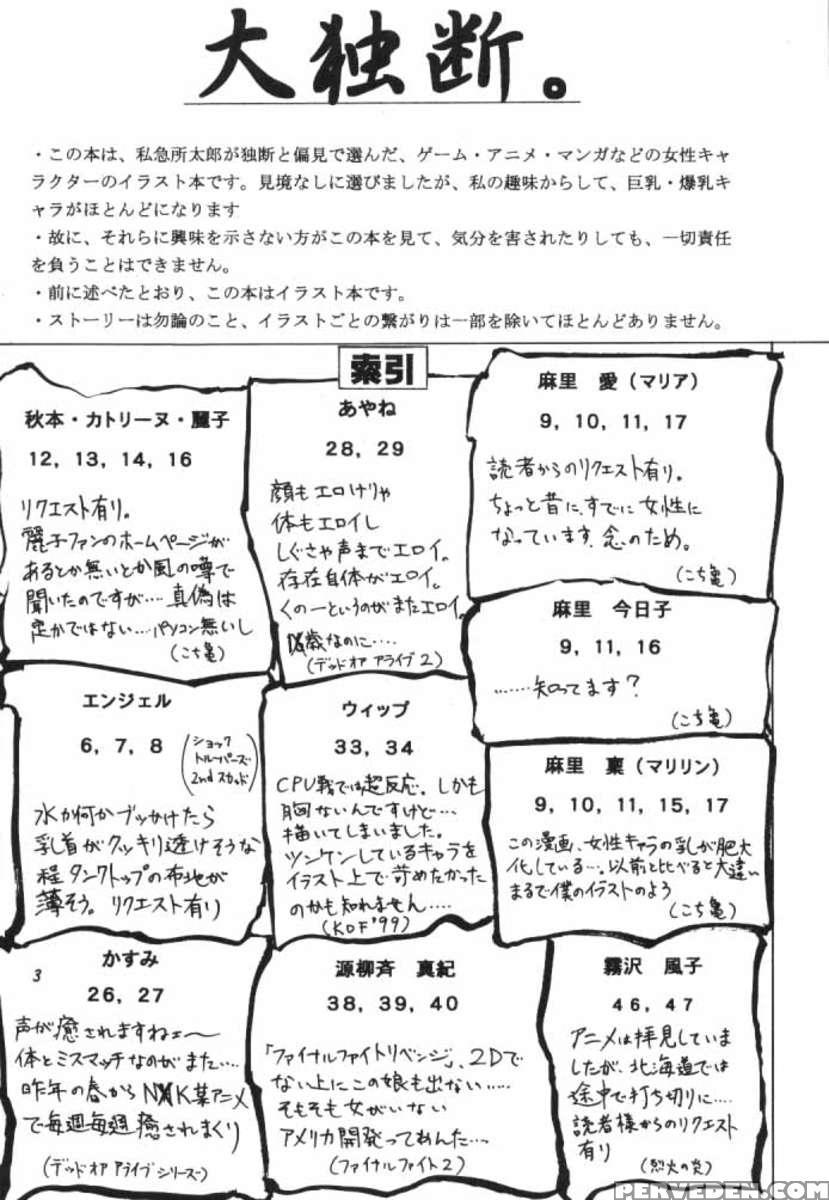 大独断。
・この本は、私急所太郎が独断と偏見で選んだ、ゲーム・アニメ・マンガなどの女性キャ
ラクターのイラスト本です。見境なしに選びましたが、私の趣味からして、巨乳・爆乳キ
ャラがほとんどになります
・故に、それらに興味を示さない方がこの本を見て、気分を害されたりしても、一切責任
を負うことはできません。
・前に述べたとおり、この本はイラスト本です。
・ストーリーは勿論のこと、イラストごとの繋がりは一部を除いてほとんどありません。
索引
秋本・カトリーヌ・麗子
12, 13, 14, 16
リクエスト有り。
麗子ファンのホームページが
あるとか無いとか風の噂で
聞いたのですが‥‥真偽は
定かではない…パソコン無いし
(こち亀)
あやね
28, 29
(デッドオアアライブ2)
麻里　愛（マリア）
9, 10, 11, 17
読者からのリクエスト有り。
ちょっと昔に、すでに女性に
なっています。念のため。
(こち亀)
麻里　今日子
9, 11, 16
‥‥‥知ってます？
(こち亀)
エンジェル
6, 7, 8
(ショック
トルーパーズ
2ndスカッド)
水か何かブッかけたら
乳首がクッキリ透けそうな
程タンクトップの布地が
薄そう。リクエスト有り
ウィップ
33, 34
CPU戦では超反応。しかも
胸ないんですけど‥‥
描いてしまいました。
ツンケンしているキャラを
イラスト上で苛めたかった
のかも知れません‥‥
(KOF'99)
麻里　稟（マリリン）
9, 10, 11, 15, 17
この漫画、女性キャラの乳が肥大
化している…。以前と比べると大違い
まるで僕のイラストのよう
(こち亀)
かすみ
3
26, 27
声が癒されますねェ〜
体とミスマッチなのがまた‥‥
昨年の春からNXK某アニメ
で毎週毎週癒されまくり
(デッドオアアライブシリーズ)
源柳斉　真紀
38, 39, 40
「ファイナルファイトリベンジ」、2Dで
ない上にこの娘も出ない‥‥‥
そもそも女がいない
アメリカ開発ってあんた‥‥
(ファイナルファイト2)
霧沢　風子
46, 47
アニメは拝見していま
したが、北海道では
途中で打ち切りに‥‥
読者様からのリクエスト
有り
(烈火の炎)
PERVEDEN.COM